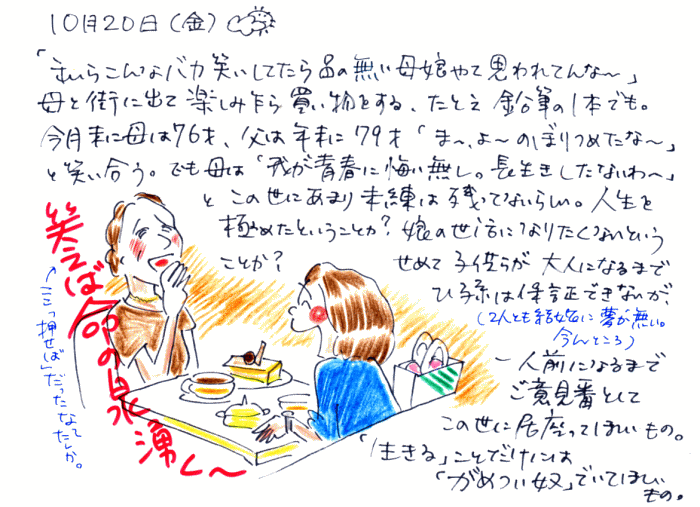 10月20日(金)
「あいらこんなバカ笑いしてたら品の無い母娘やて思われてんな〜」
母と街に出て楽しみ乍ら買い物をする、たとえ鉛筆の1本でも。
今月末に母は76才、父は年末に79才「ま〜、よ〜のぼりつめたな〜」
と笑い合う。でも母は「我が青春に悔い無し。長生きしたないわ〜」
とこの世にあまり未練は残ってないらしい。人生を
極めたということか?娘の世話になりたくないという
ことか? せめて子供らが大人になるまで
ひ孫は保証できないが、
(2人とも結婚に夢が無い。
今んところ)
一人前になるまで
ご意見番として
この世に居座ってほしいもの。
「生きる」ことだけには
「がめつい奴」でいてほしい
もの。
笑えば命の泉湧く〜
↑「ここっ押せば」だったなたしか。